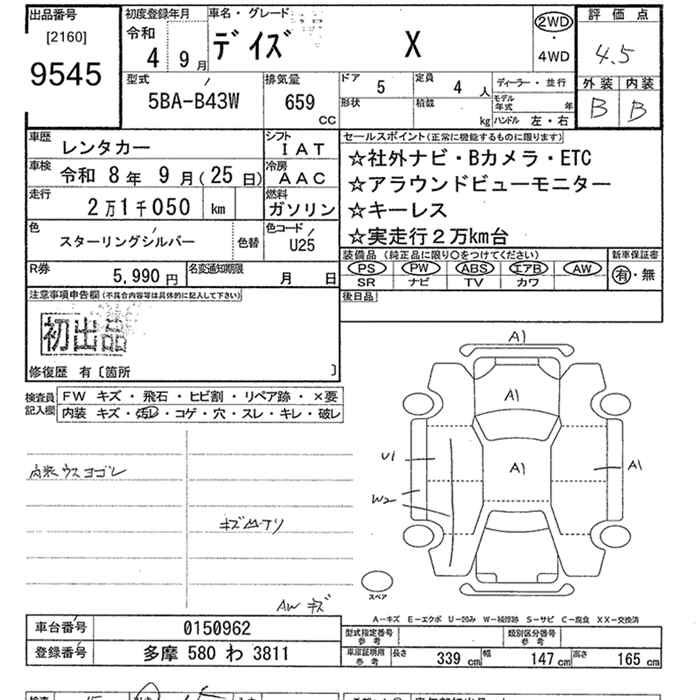 出品番号
[2160]
9545
初度登録年月
令和
4 9月
車名・グレード
デイズ X
2WD
・
4WD
評価点
4.5
外装 内装
B B
型式
5BA-B43W
排気量
659
cc
ドア
5
定員
4 人
形状
積載
kg
ディーラー・並行
モデル年式 年
ハンドル 左・右
車歴
レンタカー
シフト
IAT
車検
令和 8年 9月(25日)
冷房
AAC
走行
2万1千050 km
燃料
ガソリン
色
スターリングシルバー
色替
色コード
U25
R券
5,990円
名変通知期限
月 日
セールスポイント(正常に機能するものに限ります)
☆社外ナビ・Bカメラ・ETC
☆アラウンドビューモニター
☆キーレス
☆実走行2万km台
装備品 (純正品に限り○をつけてください)
PS PW ABS エアB AW
SR ナビ TV カワ
新車保証書
有・無
後日品
注意事項申告欄(不具合内容等は具体的に記入して下さい)
初出品
修復歴 有〔箇所 〕
検査員
記入欄
FW キズ・飛石・ヒビ割・リペア跡・×要
内装 キズ・汚レ・コゲ・穴・スレ・キレ・破レ
内装ウスヨゴレ
AWキズ
A1
A1
A1
U1
A1
W2
スペア
A-キズ E-エクボ U-凹み W-補修跡 S-サビ C-腐食 XX-交換済
車台番号
0150962
登録番号
多摩 580 わ 3811
型式指定番号
参考
類別区分番号
参考
車庫証明用
参考
長さ 339cm 幅 147cm 高さ 165cm